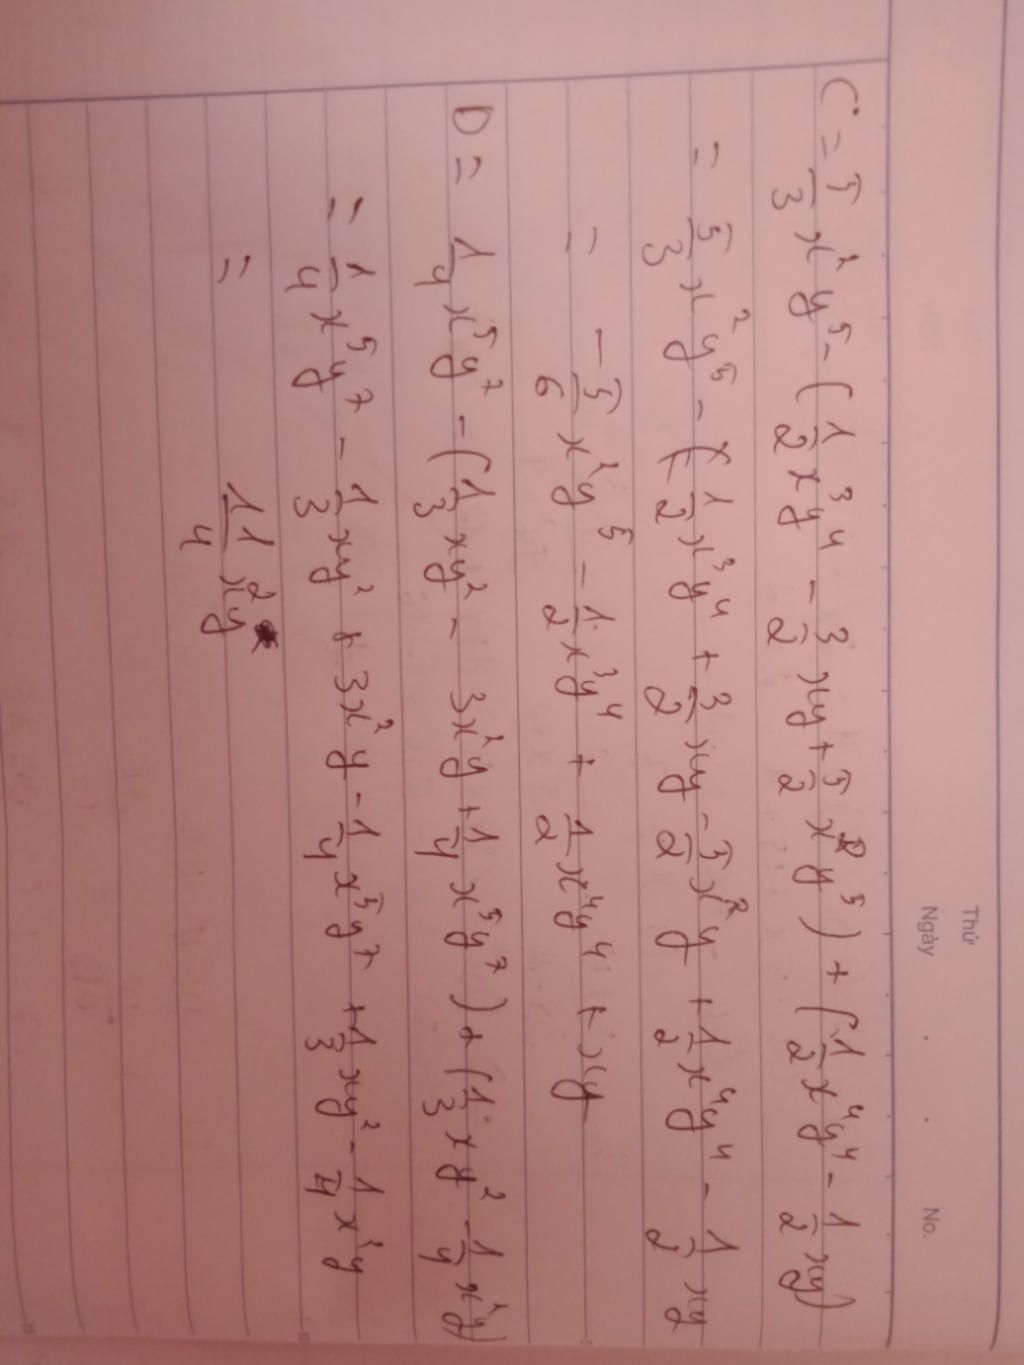 Thứ
Ngày . . No.
C = 5/3 x²y⁵ - (1/2 x³y⁴ - 3/2 xy + 5/2 x²y⁵) + (1/2 x⁴y⁴ - 1/2 xy)
= 5/3 x²y⁵ - 1/2 x³y⁴ + 3/2 xy - 5/2 x²y + 1/2 x⁴y⁴ - 1/2 xy
= -5/6 x²y⁵ - 1/2 x³y⁴ + 1/2 x⁴y⁴ + xy
D = 1/4 x⁵y⁷ - (1/3 xy² - 3x²y + 1/4 x⁵y⁷) + (1/3 xy² - 1/4 x²y)
= 1/4 x⁵y⁷ - 1/3 xy² + 3x²y - 1/4 x⁵y⁷ + 1/3 xy² - 1/4 x²y
= 11/4 x²y